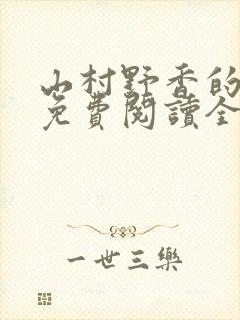 山村野香的
免費閱讀全
一世三樂